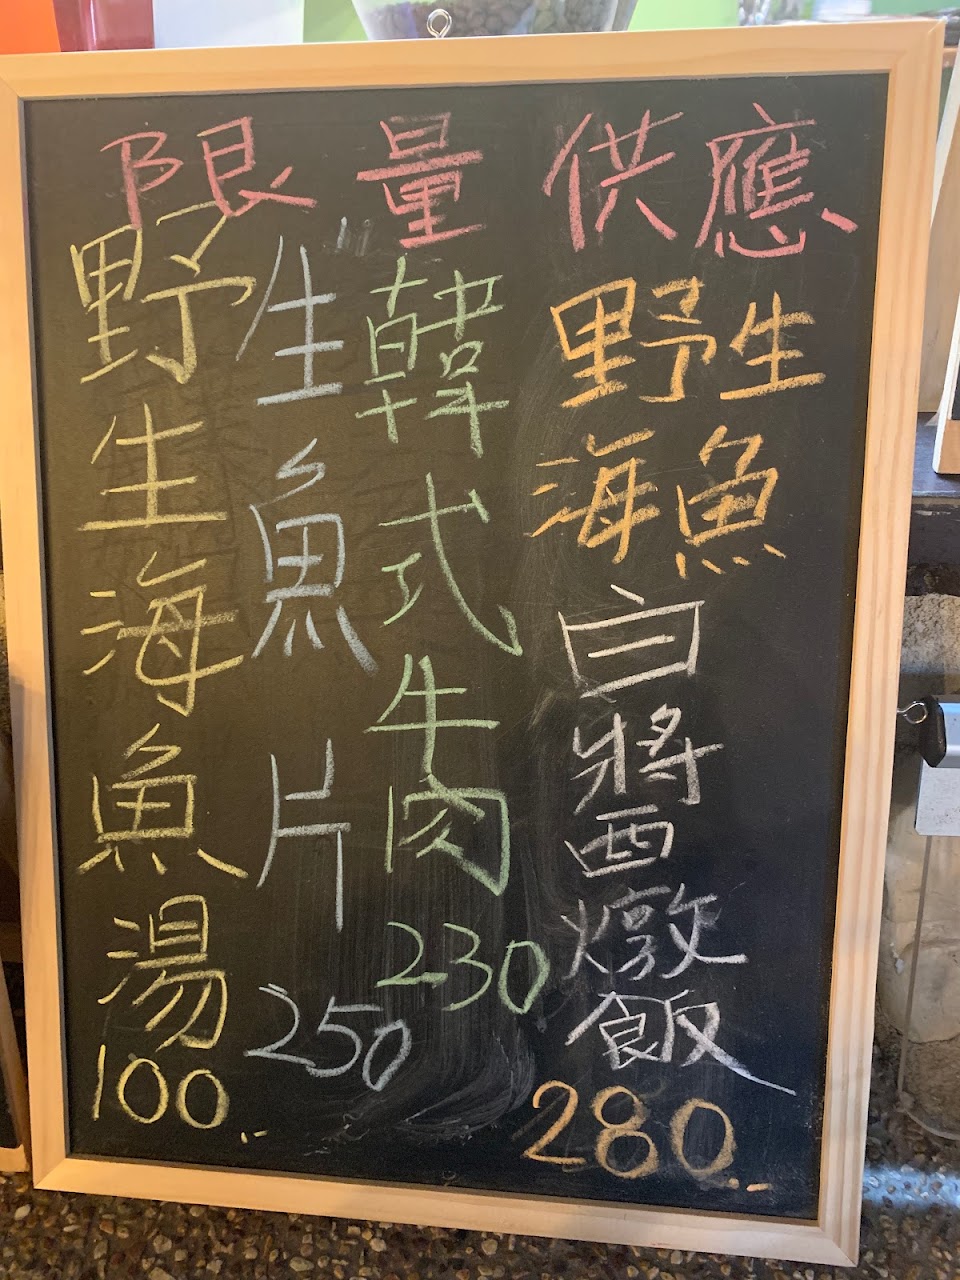 限量供應
野生
海魚
白醬燉飯
280
韓式牛肉
230
生魚片
250
野生海魚湯
100